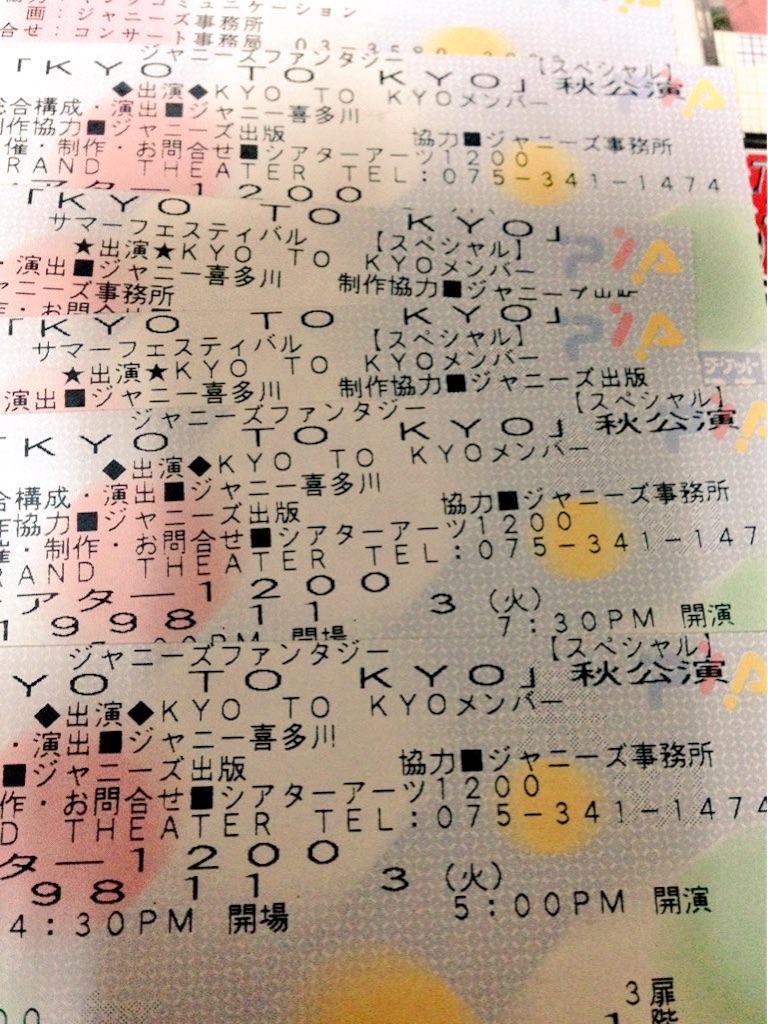 画:ジャニーズ事務所
合せ:コンサート事務局 03-3580
ジャニーズファンタジー
「KYO TO KYO」【スペシャル】秋公演
◆出演◆KYO TO KYOメンバー
総合構成・演出■ジャニー喜多川
制作協力■ジャニーズ出版 協力■ジャニーズ事務所
催・制作・お問合せ■シアターアーツ1200
RAND THEATER TEL:075-341-1474
アター1200
「KYO TO KYO」
サマーフェスティバル 【スペシャル】
★出演★KYO TO KYOメンバー
演出■ジャニー喜多川 制作協力■ジャニーズ出版
ャニーズ事務所
「KYO TO KYO」
サマーフェスティバル 【スペシャル】
★出演★KYO TO KYOメンバー
演出■ジャニー喜多川 制作協力■ジャニーズ出版
チケット
ジャニーズファンタジー 【スペシャル】
「KYO TO KYO」秋公演
◆出演◆KYO TO KYOメンバー
合構成・演出■ジャニー喜多川
作協力■ジャニーズ出版 協力■ジャニーズ事務所
催・制作・お問合せ■シアターアーツ1200
RAND THEATER TEL:075-341-147
アター1200
1998 11 3 (火)
開場 7:30PM 開演
ジャニーズファンタジー 【スペシャル】
YO TO KYO」秋公演
◆出演◆KYO TO KYOメンバー
・演出■ジャニー喜多川
■ジャニーズ出版 協力■ジャニーズ事務所
作・お問合せ■シアターアーツ1200
D THEATER TEL:075-341-1474
ター1200
98 11 3 (火)
4:30PM 開場 5:00PM 開演
3扉
1階